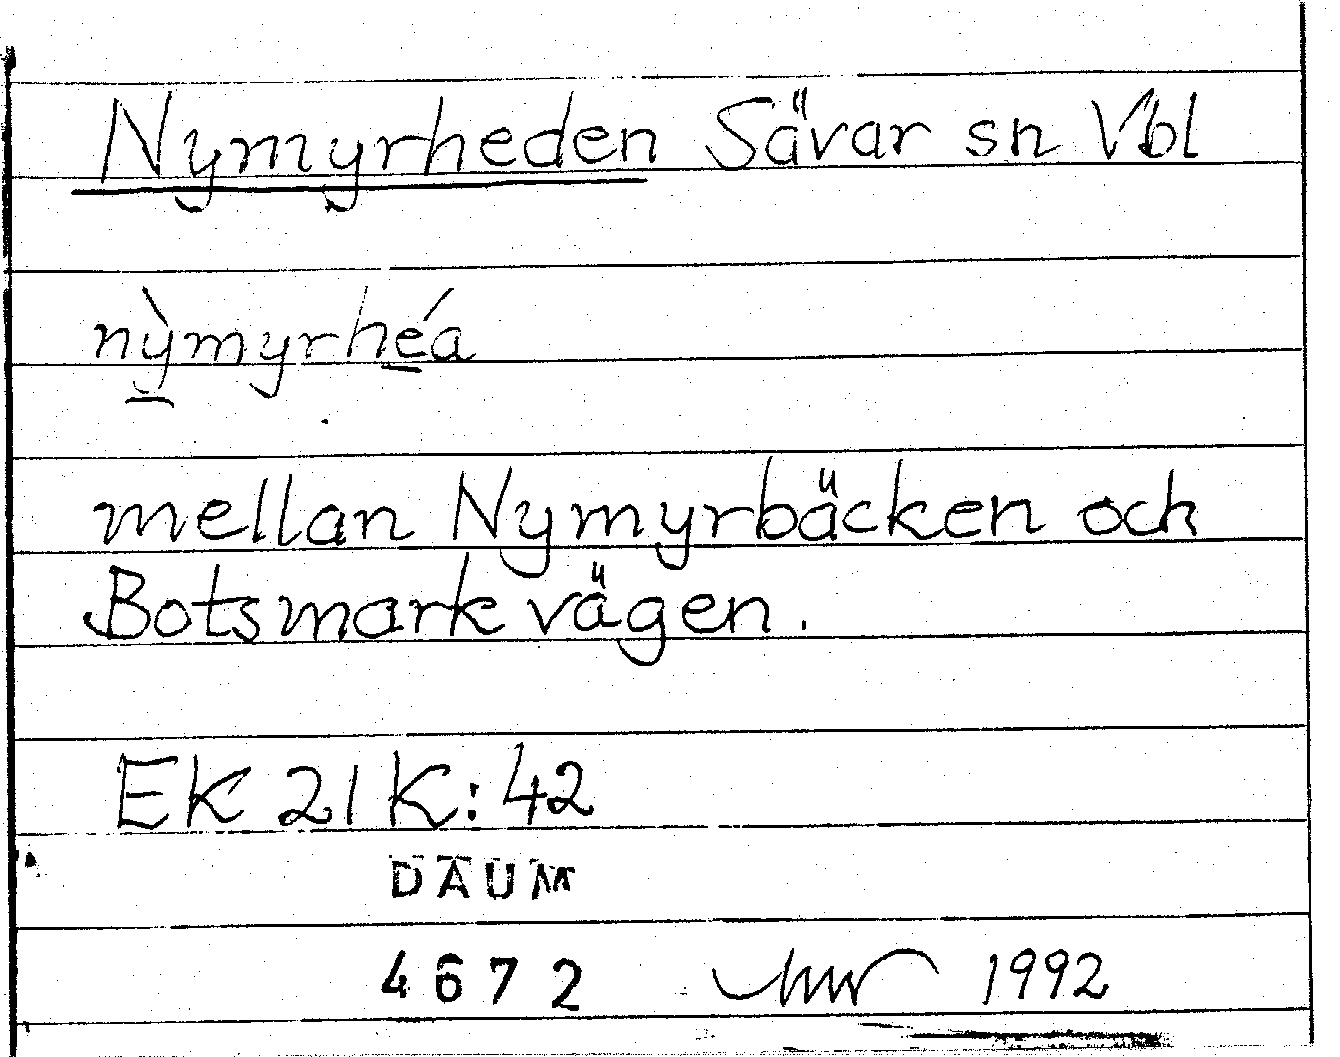 Nymyrheden Sävar sn Vbl
nỳmyrhéa
mellan Nymyrbäcken och
Botsmarkvägen.
EK 21 K: 42
DAUM
4672 1992